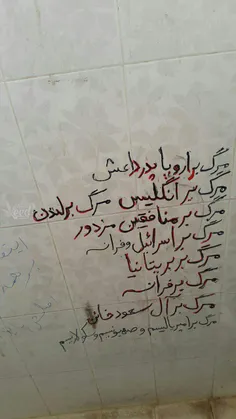 مرگ بر اروپا پدر داعش
مرگ بر انگلیس مرگ بر لندن
مرگ بر منافقین مزدور
مرگ بر اسرائیل و فرانسه
مرگ بر بریتانیا
مرگ بر فرانسه
مرگ بر آل سعود خائن
مرگ بر امپریالیسم و صهیونیسم و